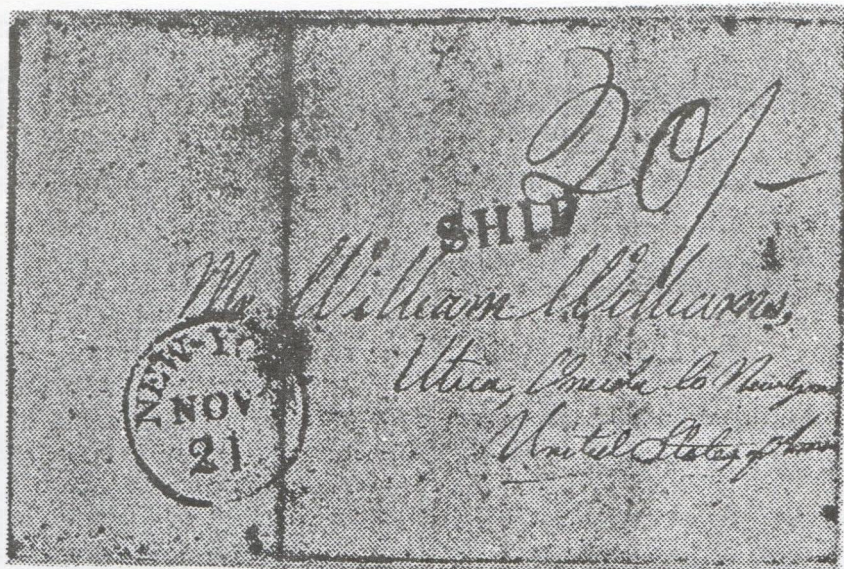 20/-
SHIP
Mr. William Williams,
Utica, Oneida Co
United States of
NEW-YORK
NOV
21